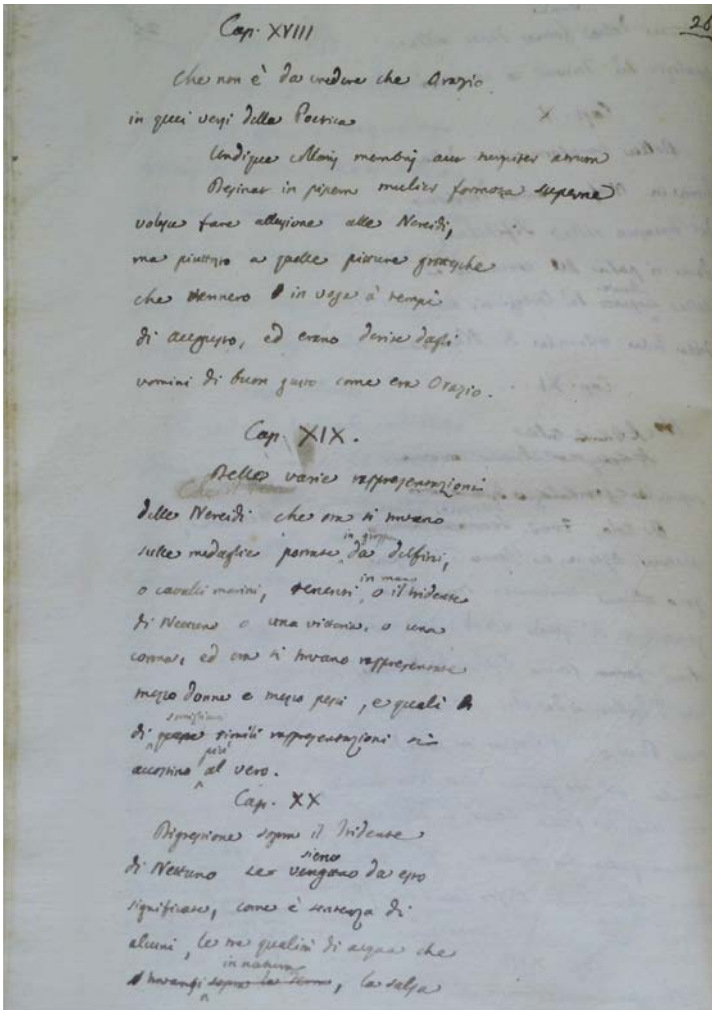 26
Cap. XVIII
Che non è da credere che Orazio
in quei versi della Poetica
Undique collatis membris aut turpiter atrum
Desinat in piscem mulier formosa superne
volesse fare allusione alle Nereidi,
ma piuttosto a quelle pitture grottesche
che vennero in voga a' tempi
di Augusto, ed erano derise dagli
uomini di buon gusto come era Orazio.
Cap. XIX.
Delle varie rappresentazioni
delle Nereidi che ora si trovano
in groppa
sulle medaglie portate da delfini,
in mano
o cavalli marini, tenenti o il tridente
di Nettuno o una vittoria, o una
corona, ed ora si trovano rappresentate
mezzo donne e mezzo pesci, e quali
di simili rappresentazioni si
più
accostino al vero.
Cap. XX
Digressione sopra il Tridente
siano
di Nettuno se vengano da esso
significate, come è sentenza di
alcuni, le tre qualità di acqua che
in natura
trovansi sopra la Terra, la salsa